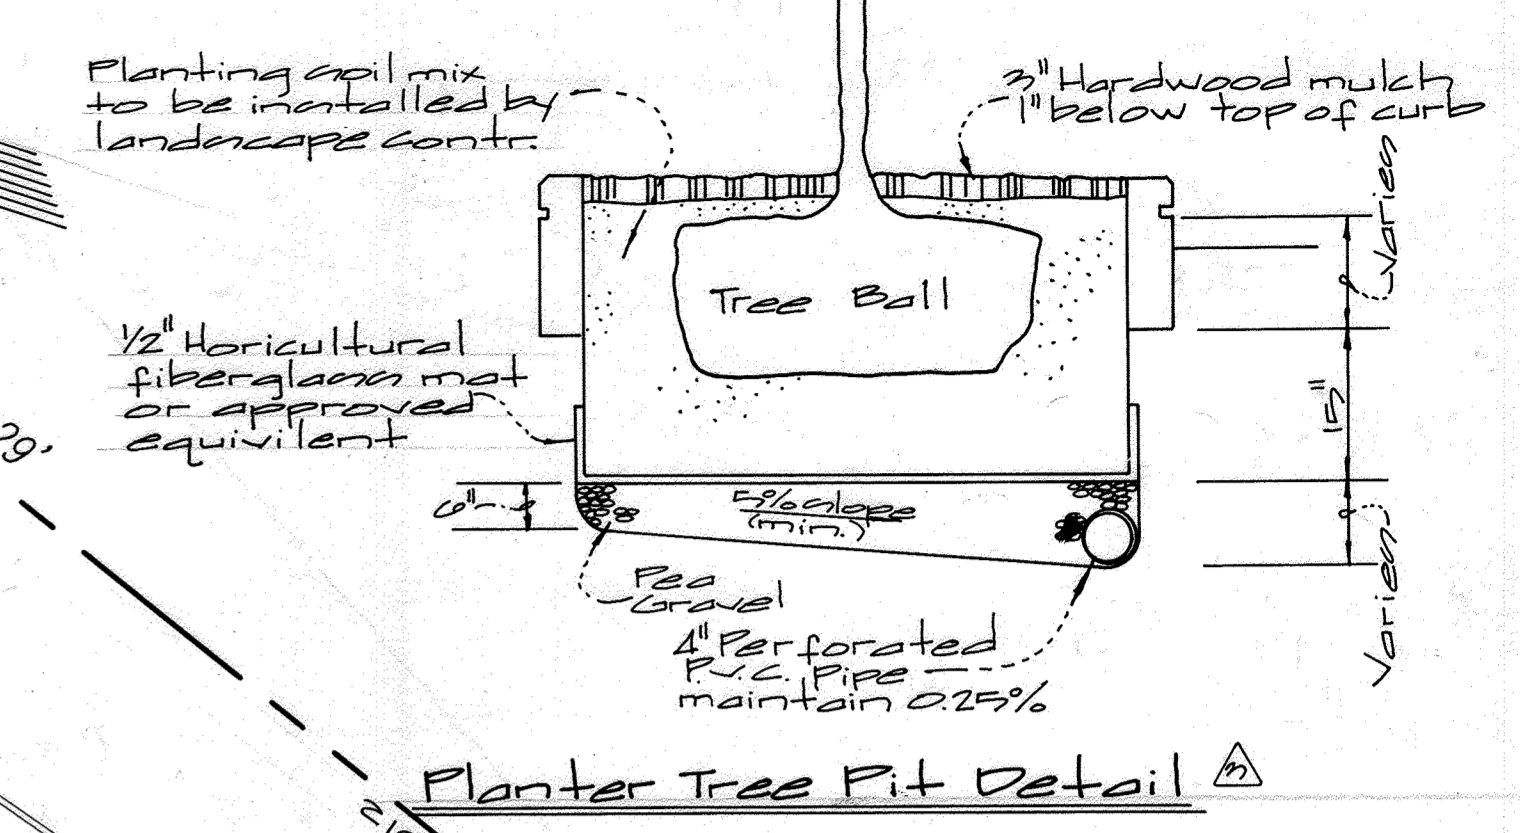 Planting soil mix
to be installed by
landscape contr.
3" Hardwood mulch
1" below top of curb
Varies
Tree Ball
1/2" Horicultural
fiberglass mat
or approved
equivilent
15"
6"
5% slope
(min.)
Pea
Gravel
Varies
4" Perforated
P.V.C. Pipe
maintain 0.25%
Planter Tree Pit Detail
3